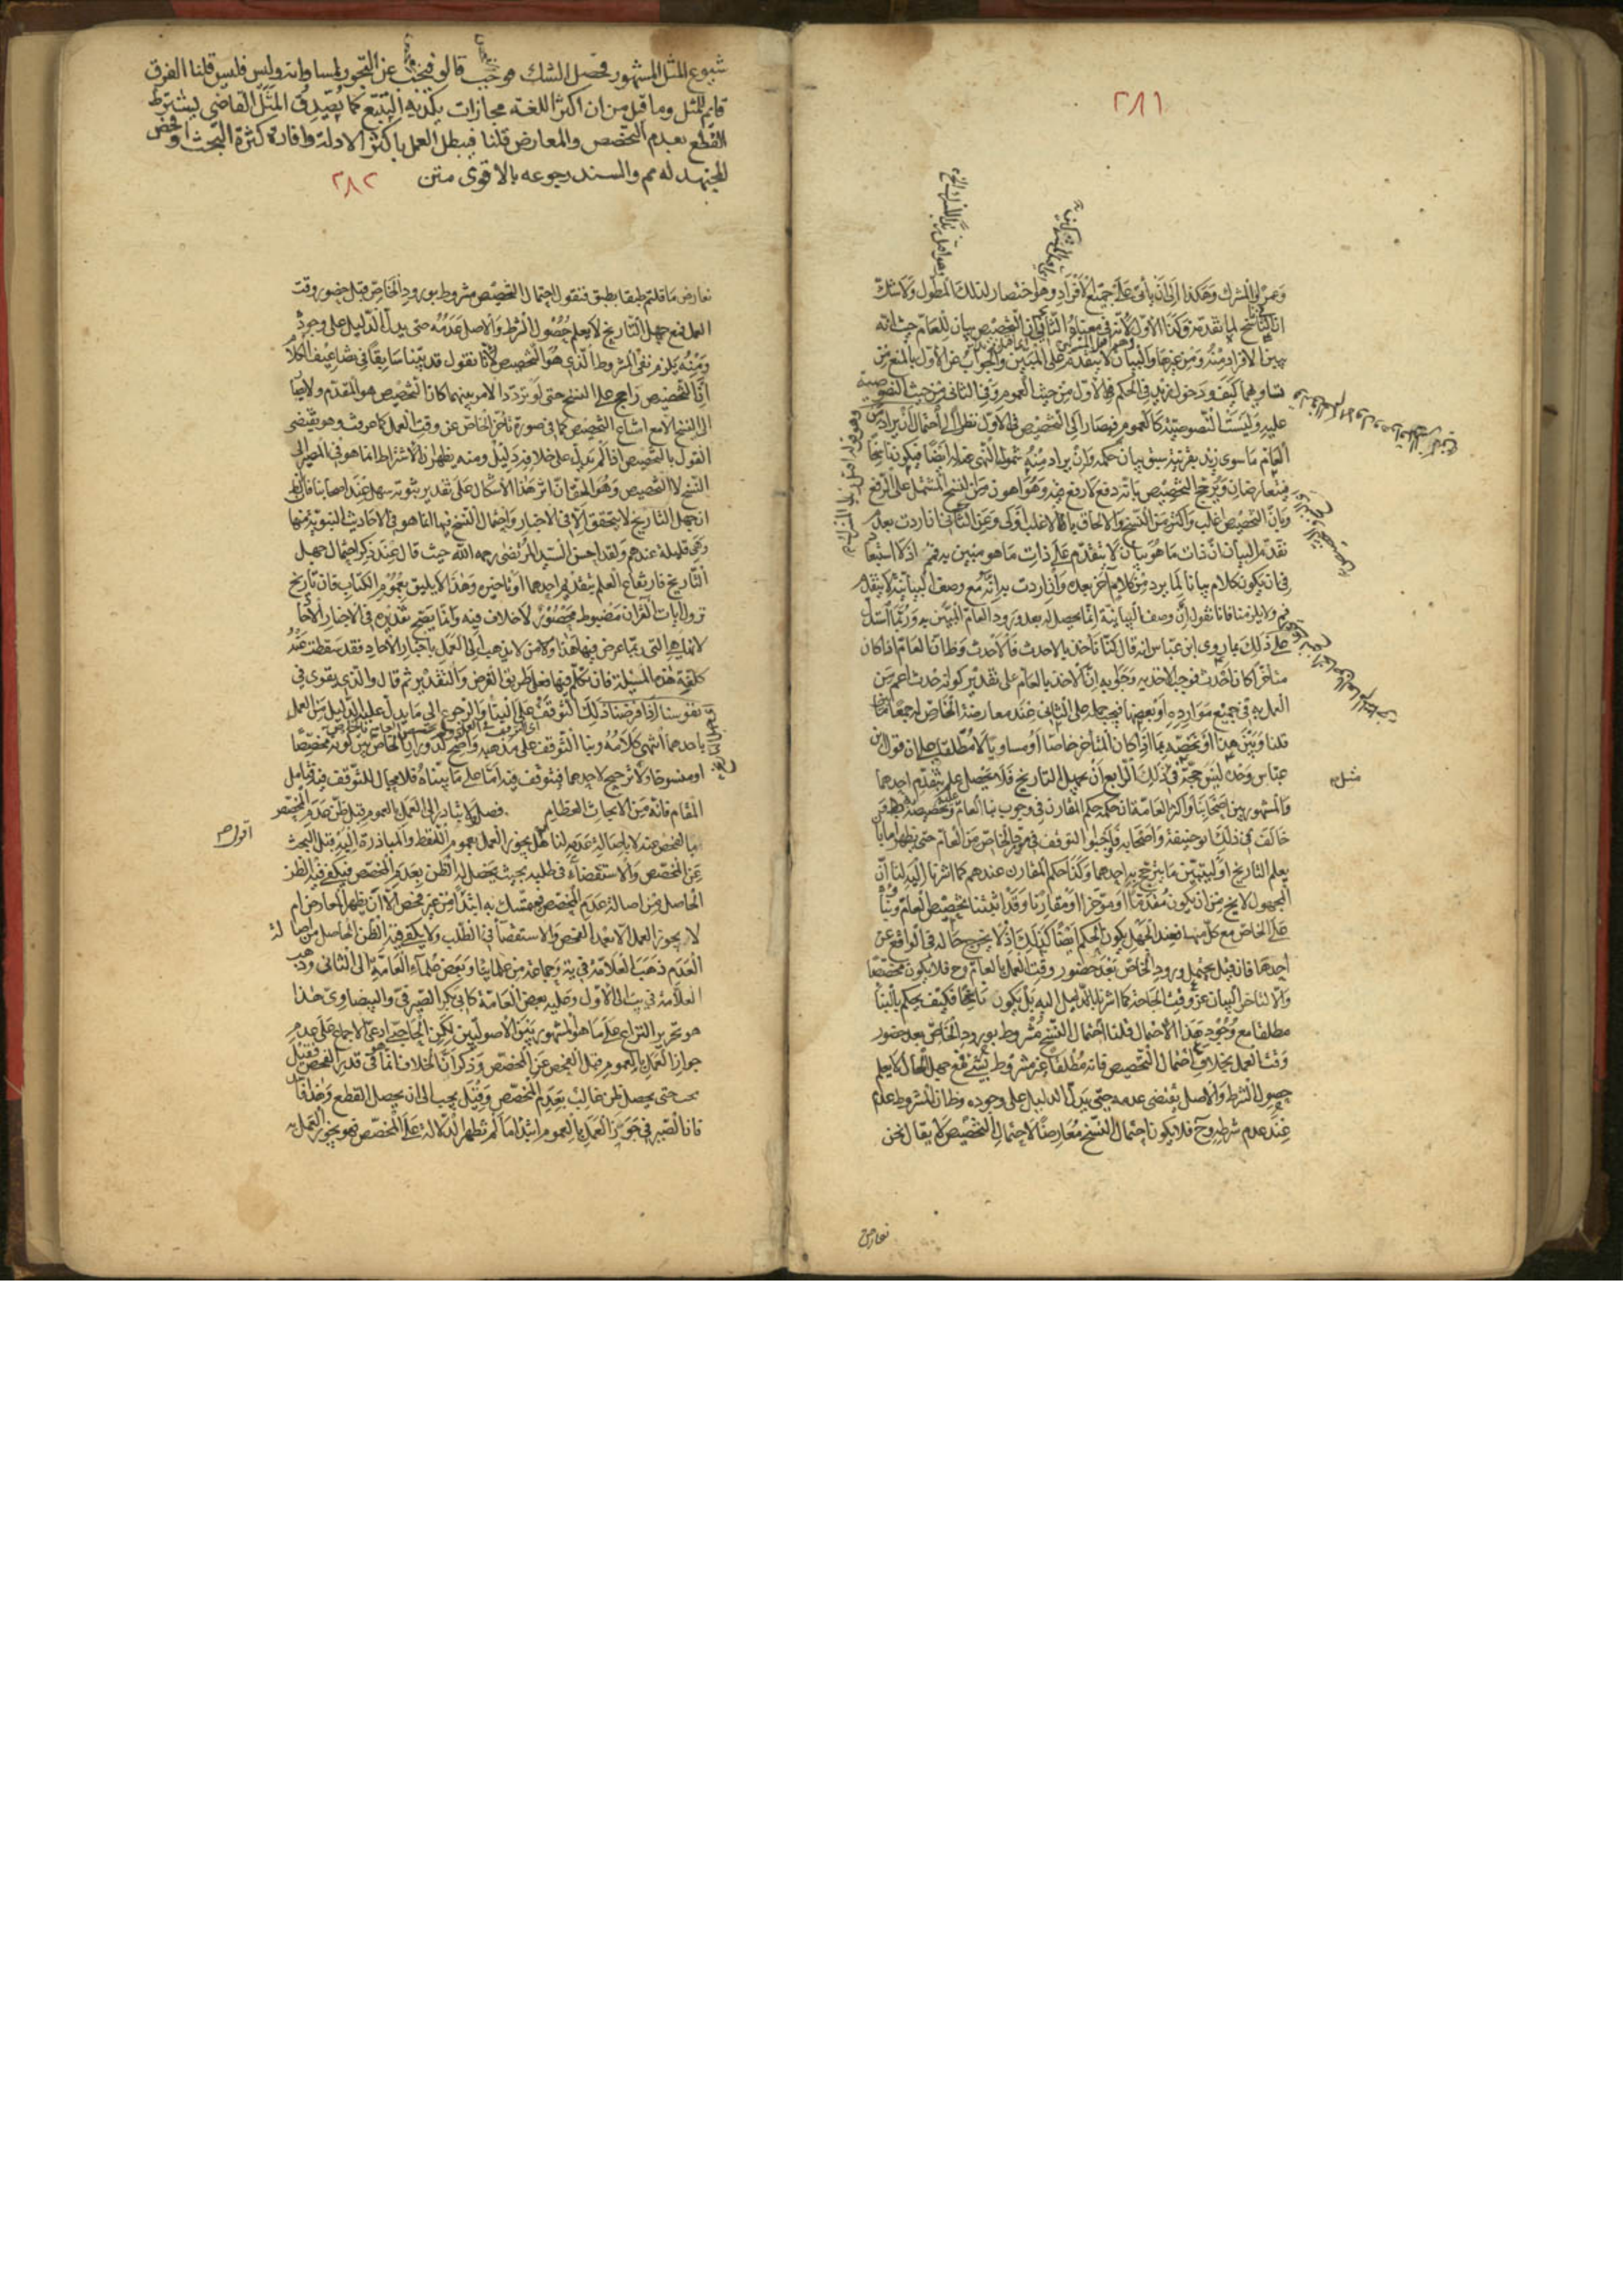 ٢٨١
وعمرو المشرك وهكذا الى ان يأتى على جميع الافراد وهو اختصار لذلك المطول ولا شك
ان الناسخ لما تقدمه وكذا الاول لانه فى معناه الثانى ان التخصيص بيان للعام حيث انه
يبين الافراد منه ومن غيرها والبيان لا يتقدم على المبين والجواب عن الاول بالمنع من
تساويهما كيف ودخول زيد فى الحكم فى الاول من حيث العموم وفى الثانى من حيث الخصوصية
عليه وليست الخصوصية كالعموم فيصار الى التخصيص فى الاول نظرا الى احتمال ان يراد من
العام ما سوى زيد بقرينة سبق بيان حكمه وان يراد منه شمول النهى عنه ايضا فيكون ناسخا
فيتعارضان ويرجح التخصيص بانه دفع لا رفع وهو اهون من النسخ المشتمل على الرفع
وبان التخصيص اغلب واكثر من النسخ والالحاق بالاغلب اولى وعن الثانى ان اردت بعدم
تقدم البيان ان ذات ما هو بيان لا يتقدم على ذات ما هو مبين به فمم اذ لا استبعاد
فى ان يكون كلام بيانا لما يرد من كلام آخر بعده وان اردت به انه مع وصف البيانية لا يتقدم
فم ولا يلزمنا فانا نقول ان وصف البيانية انما يحصل له بعد ورود العام المبين به وربما استدل
على ذلك بما روى ابن عباس انه قال كنا نأخذ بالاحدث فالاحدث وظ ان العام اذا كان
متأخرا كان احدث فوجب الاخذ به وجوابه ان الاخذ بالعام على تقدير كونه احدث اعم من
العمل به فى جميع موارده او بعضها فيجب حمله على الثانى عند معارضة الخاص له جمعا
قلنا وبين هذا او نخصه بما اذا كان المتأخر خاصا او مساويا لا مطلقا على ان قول ابن
عباس وحده ليس حجة فى ذلك الرابع ان يجهل التاريخ فلا يحصل علم بتقدم احدهما
والمشهور بين اصحابنا واكثر العامة ان حكمه حكم المقارن فى وجوب بناء العام وتخصيصه
خالف فى ذلك ابو حنيفة واصحابه فاوجبوا التوقف فى الخاص من العام حتى يظهر اما بان
يعلم التاريخ او ليتبين ما يترجح به احدهما وكذا حكم المقارن عندهم كما اشرنا اليه لنا ان
المجهول لا يخ من ان يكون متقدما او مؤخرا او مقارنا وقد اثبتنا تخصيص العام وبناؤه
على الخاص مع كل منها فعند الجهل يكون الحكم ايضا كذلك اذ لا يخرج حاله فى الواقع عن
احدها فان قيل يحتمل ورود الخاص بعد حضور وقت العمل بالعام وح فلا يكون مخصصا
والا لتاخر البيان عن وقت الحاجة كما اشرنا بالدليل اليه بل يكون ناسخا فكيف يحكم بالبناء
مطلقا مع وجود هذا الاحتمال قلنا احتمال النسخ مشروط بورود الخاص بعد حضور
وقت العمل بخلاف احتمال التخصيص فانه مطلقا غير مشروط بشئ فمع جهل الحال لا يعلم
حصول الشرط والاصل يقتضى عدمه حتى يدل الدليل على وجوده وظ ان المشروط عدم
عند عدم شرطه وح فلا يكون احتمال النسخ معارضا لاحتمال التخصيص لا يقال نحن
تعارض
شيوع المثل المشهور فحصل الشك موجب قالو فيجب عن التجوز لمساواته وليس فليس قلنا الفرق
قايم للمثل وما قيل من ان اكثر اللغة مجازات يكذبه التتبع كما يصدق المثل القاضى يشترط
القطع بعدم المخصص والمعارض قلنا فيبطل العمل باكثر الادلة وافادة كثرة البحث وفحص
المجتهد له مم والسند رجوعه بالاقوى متن
٢٨٢
نعارض ما قلتم طبقا بطبق فنقول احتمال التخصيص مشروط بورود الخاص قبل حضور وقت
العمل فمع جهل التاريخ لا يعلم حصول الشرط والاصل عدمه حتى يدل الدليل على وجوده
ومنه يلزم نفى المشروط الذى هو التخصيص لانا نقول قد بينا سابقا فى تضاعيف الكلام
ان التخصيص راجح على النسخ حتى لو تردد الامر بينهما كان التخصيص هو المقدم ولا يصار
الى النسخ الا مع امتناع التخصيص كما فى صورة تأخر الخاص عن وقت العمل كما عرفت وهو يقتضى
القول بالتخصيص اذا لم يدل على خلافه دليل ومنه يظهر ان الاشتراط انما هو فى المصير الى
النسخ لا التخصيص وهو الحق ان اثر هذا الاشكال على تقدير ثبوته سهل عند اصحابنا فان الظ
ان جهل التاريخ لا يتحقق الا فى الاخبار واحتمال النسخ فيها انما هو فى الاحاديث النبوية منها
وهى قليلة عندهم ولقد احسن السيد المرتضى رحمه الله حيث قال عند ذكر احتمال جهل
التاريخ فارتفاع العلم بتقديم احدهما او تأخيره وهذا لا يليق بعموم الكتاب فان تاريخ
نزول آيات القرآن مضبوط محصور لا خلاف فيه وانما يصح تقديره فى الاخبار الآحاد
لانها هى التى ربما عرض فيها هذا ولا من لا يذهب الى العمل باخبار الآحاد فقد سقطت عنه
كلفة هذه المسئلة فان تكلم فيها فعلى طريق الفرض والتقدير ثم قال والذى يقوى فى
نفوسنا اذا فرضنا ذلك التوقف على البناء والرجوع الى ما يدل عليه الدليل من العمل
باحدهما انتهى كلامه وبنا التوقف على مذهبه واضح لدوران الخاص بين كونه مخصصا
او منسوخا ولا ترجيح لاحدهما فيتوقف فيه اما على ما بيناه فلا مجال للتوقف فيه فتأمل
المقام فانه من الابحاث العظايم فصل لا يبادر الى العمل بالعموم قبل ظن عدم المخصص
بالفحص عنه لا باصالة عدمه لنا هل يجوز العمل بعموم اللفظ والمبادرة اليه قبل البحث
عن المخصص والاستقصاء فى طلبه بحيث يحصل له الظن بعدم المخصص فيكفى فيه الظن
الحاصل من اصالة عدم المخصص فيتمسك به ابتداء من غير فحص الا ان يظهر المعارض ام
لا يجوز العمل الا بعد الفحص والاستقصاء فى الطلب ولا يكفى فيه الظن الحاصل من اصالة
العدم ذهب العلامة فى ية وجماعة من علمائنا وبعض علماء العامة الى الثانى وذهب
العلامة فى يب الى الاول وعليه بعض العامة كابى بكر الصيرفى والبيضاوى هذا
هو تحرير النزاع على ما هو المشهور بين الاصوليين لكن الحاجبى ادعى الاجماع على عدم
جواز العمل بالعموم قبل الفحص عن المخصص وذكر ان الخلاف انما هو فى قدر الفحص فقيل
يبحث حتى يحصل ظن غالب بعدم المخصص وقيل يجب الى ان يحصل القطع وهذا
فان الصيرفى جوز العمل بالعموم ابتداء ما لم تظهر الدلالة على المخصص فهو يجوز العمل به